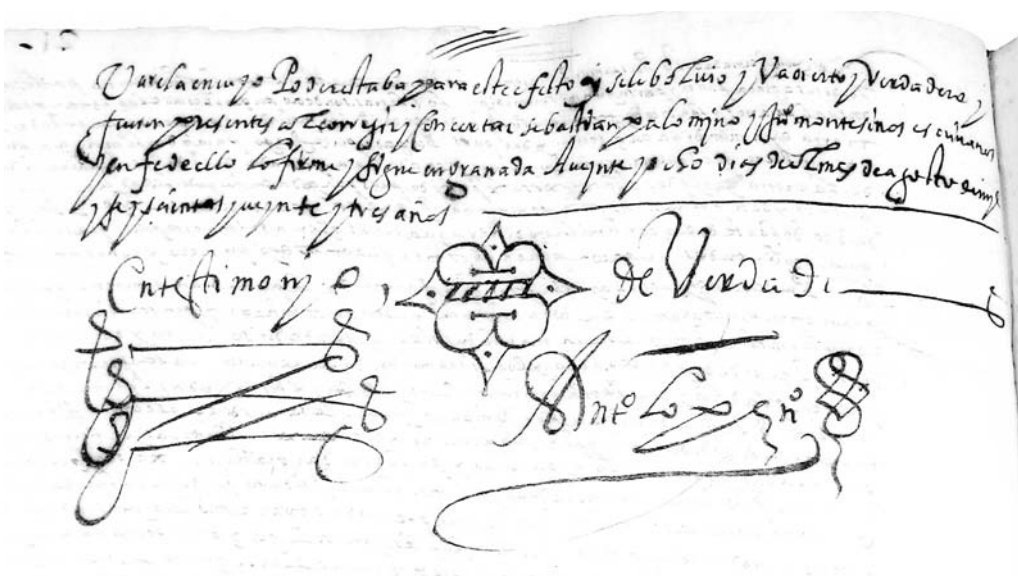 Varela en cuyo Poder estaba para este efeto y se le bolvio y Va cierto y Verdadero y
fueron presentes a le corregir y Concertar sebastian palomino y Juº montesinos escrivanos
y en fe de ello lo firme y signe en Granada A veynte y ocho dias del mes de agosto de mil
y seyscientos y veynte y tres años
En testimonio de Verdad
Antº Lopez